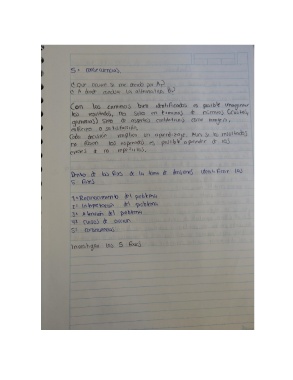 5- Consecuencias.
¿Que ocurre si me decido por A₁?
¿A donde conduce la alternativa A₂?
Con los caminos bien identificados es posible imaginar
los resultados, no solo en terminos de numeros (costos,
ganancias) sino de aspectos cualitativos como imagen,
o satisfacción.
Cada decisión implica un aprendizaje. Aun si los resultados
no fueron los esperados es posible aprender de los
errores y no repetirlos.
Dentro de las fases de la toma de decisiones identificar las
5 fases
1º Reconocimiento del problema
2º Interpretación del problema
3º Atención del problema
4º Cursos de acción
5º Consecuencias
Investigar las 5 fases